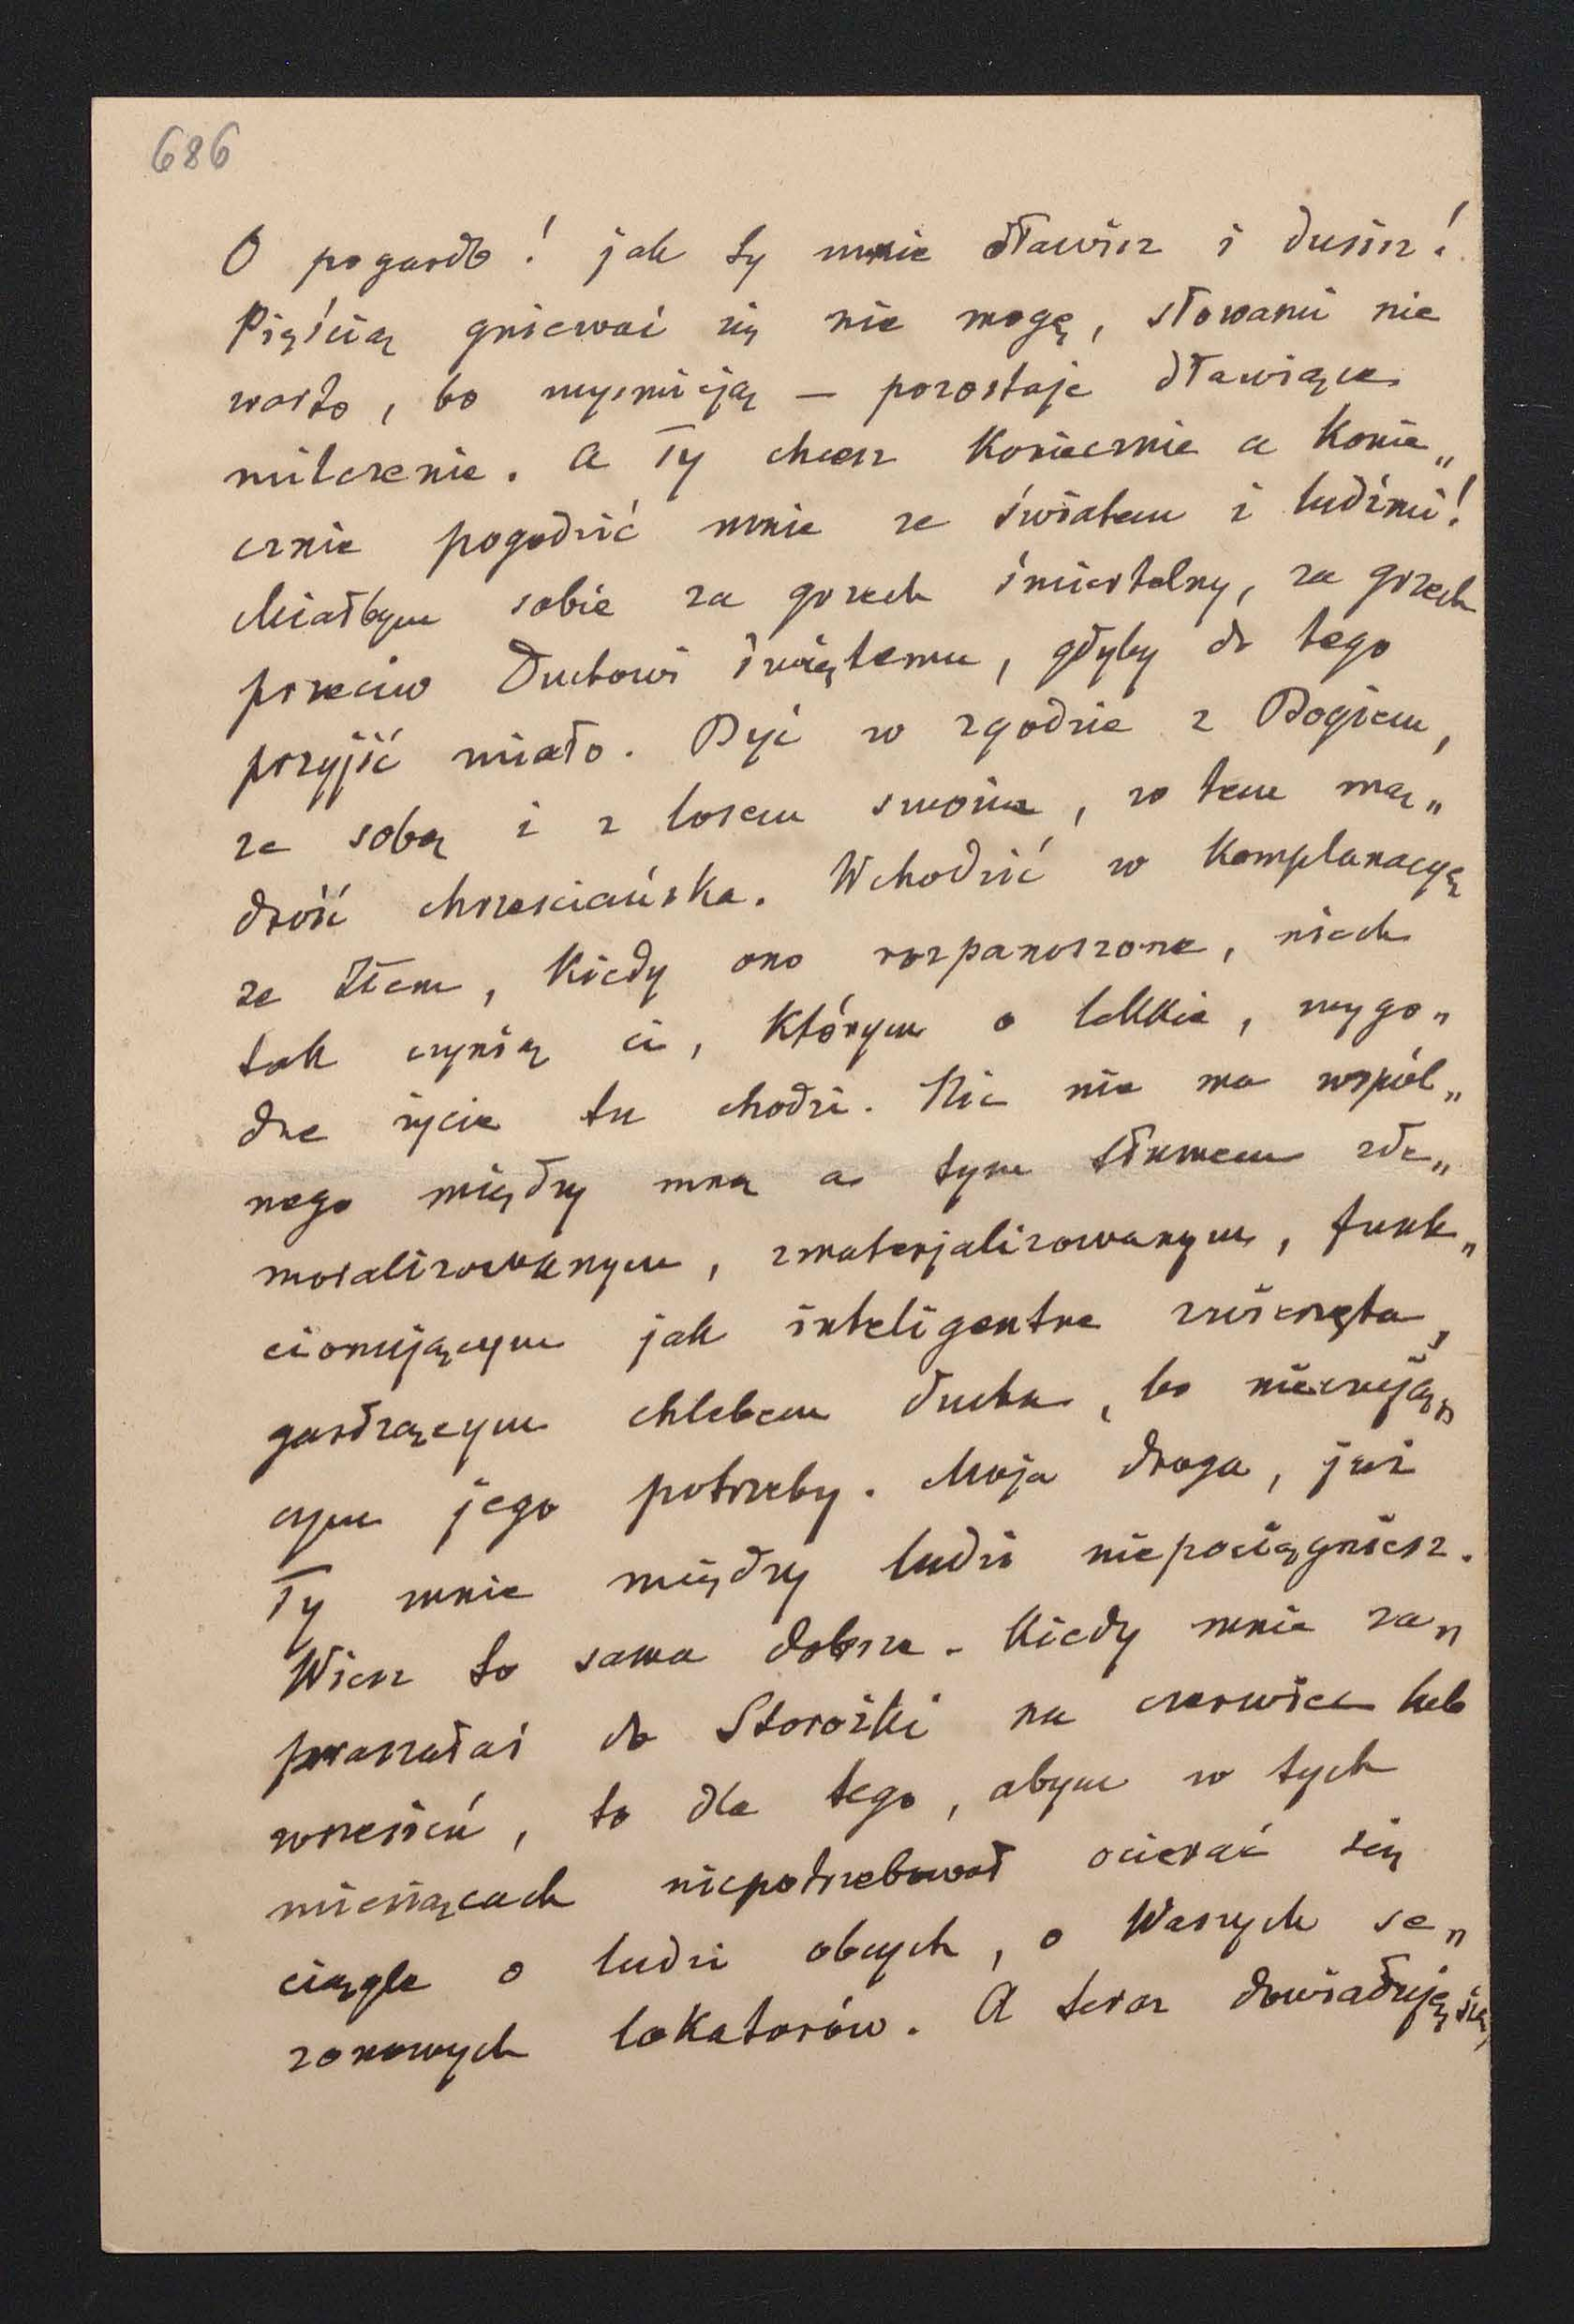 686
O pogardo! jak ty mnie dławisz i dusisz!
Pięścią gniewać się nie mogę, słowami nie
warto, bo wyśmieją — pozostaje dławiące
milczenie. A Ty chcesz koniecznie a konie„
cznie pogodzić mnie ze światem i ludźmi!
Miałbym sobie za grzech śmiertelny, za grzech
przeciw Duchowi świętemu, gdyby do tego
przyjść miało. Być w zgodzie z Bogiem,
ze sobą i z losem swoim, w tem mą„
drość chrześciańska. Wchodzić w komplanacyę
ze złem, kiedy ono rozpanoszone, niech
tak czynią ci, którym o lekkie, wygo„
dne życie tu chodzi. Nic nie ma wspól„
nego między mną a tym tłumem zde„
moralizowanym, zmaterjalizowanym, funk„
cionującym jak inteligentne zwierzęta,
gardzącym chlebem ducha, bo nieczują„
cym jego potrzeby. Moja droga, już
Ty mnie między ludzi niepociągniesz.
Wiesz to sama dobrze. Kiedy mnie za„
praszałaś do Storożki na czerwiec lub
wrzesień, to dla tego, abym w tych
miesiącach niepotrzebował ocierać się
ciągle o ludzi obcych, o Waszych se„
zonowych lokatorów. A teraz dowiaduję się,